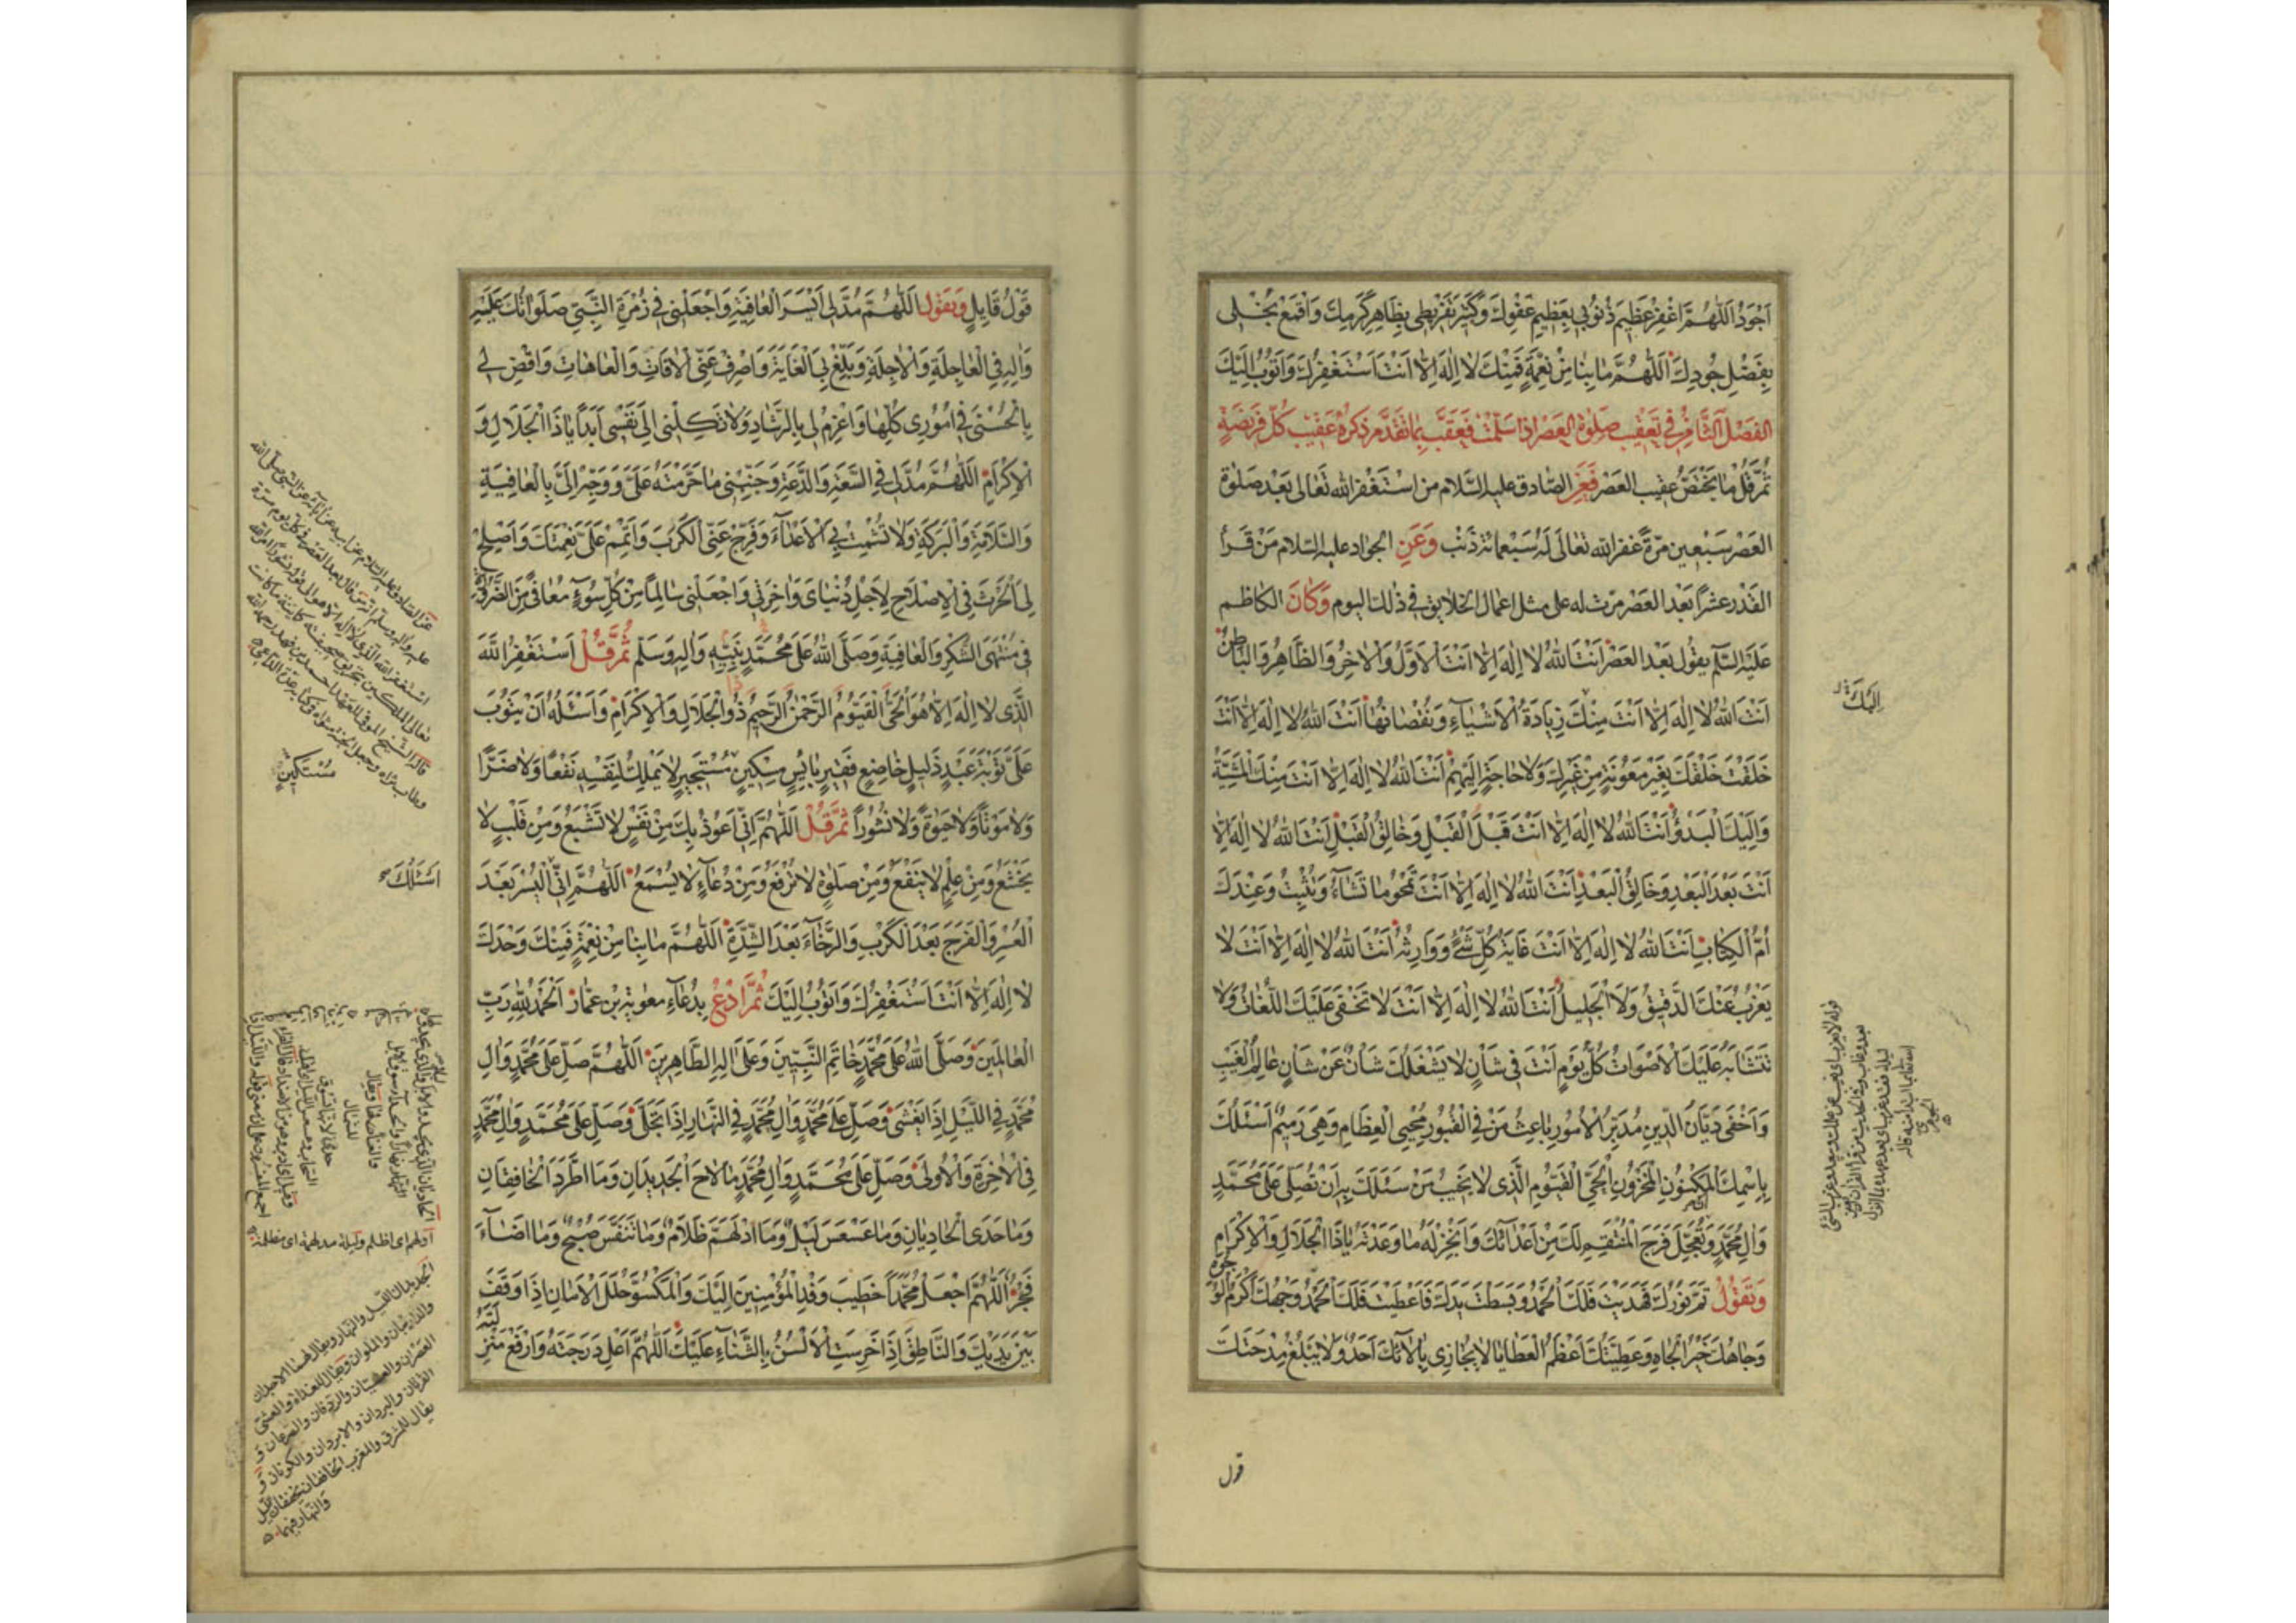 اَجْوَدُ اَللّٰهُمَّ اغْفِرْ عَظِيمَ ذُنُوبِي بِعَظِيمِ عَفْوِكَ وَكَثِيرَ تَفْرِيطِى بِظَاهِرِ كَرَمِكَ وَاقْمَعْ بُخْلِى
بِفَضْلِ جُودِكَ اَللّٰهُمَّ مَا بِنَا مِنْ نِعْمَةٍ فَمِنْكَ لَا اِلٰهَ اِلَّا اَنْتَ اَسْتَغْفِرُكَ وَاَتُوبُ اِلَيْكَ
الفصل الثامن في تعقيب صلوة العصر اذا سلمت فعقب بما تقدم ذكره عقيب كل فريضة
ثم قل ما يختص عقيب العصر فعن الصادق عليه السلام من استغفر الله تعالى بعد صلوة
العصر سبعين مرة غفر الله تعالى له سبعمائة ذنب وعن الجواد عليه السلام من قرأ
القدر عشرا بعد العصر مرت له على مثل اعمال الخلايق في ذلك اليوم وكان الكاظم
عليه السلم يقول بعد العصر اَنْتَ اللهُ لَا اِلٰهَ اِلَّا اَنْتَ الْاَوَّلُ وَالْاٰخِرُ وَالظَّاهِرُ وَالْبَاطِنُ
اَنْتَ اللهُ لَا اِلٰهَ اِلَّا اَنْتَ مِنْكَ زِيَادَةُ الْاَشْيَاءِ وَنُقْصَانُهَا اَنْتَ اللهُ لَا اِلٰهَ اِلَّا اَنْتَ
خَلَقْتَ خَلْقَكَ بِغَيْرِ مَعُونَةٍ مِنْ غَيْرِكَ وَلَا حَاجَةٍ اِلَيْهِمْ اَنْتَ اللهُ لَا اِلٰهَ اِلَّا اَنْتَ مِنْكَ الْمَشِيَّةُ
وَاِلَيْكَ الْبَدْؤُ اَنْتَ اللهُ لَا اِلٰهَ اِلَّا اَنْتَ قَبْلَ الْقَبْلِ وَخَالِقُ الْقَبْلِ اَنْتَ اللهُ لَا اِلٰهَ اِلَّا
اَنْتَ بَعْدَ الْبَعْدِ وَخَالِقُ الْبَعْدِ اَنْتَ اللهُ لَا اِلٰهَ اِلَّا اَنْتَ تَمْحُو مَا تَشَاءُ وَتُثْبِتُ وَعِنْدَكَ
اُمُّ الْكِتَابِ اَنْتَ اللهُ لَا اِلٰهَ اِلَّا اَنْتَ غَايَةُ كُلِّ شَيْءٍ وَوَارِثُهُ اَنْتَ اللهُ لَا اِلٰهَ اِلَّا اَنْتَ لَا
يَعْزُبُ عَنْكَ الدَّقِيقُ وَلَا الْجَلِيلُ اَنْتَ اللهُ لَا اِلٰهَ اِلَّا اَنْتَ لَا تَخْفَى عَلَيْكَ اللُّغَاتُ وَلَا
تَتَشَابَهُ عَلَيْكَ الْاَصْوَاتُ كُلَّ يَوْمٍ اَنْتَ فِي شَأْنٍ لَا يَشْغَلُكَ شَأْنٌ عَنْ شَأْنٍ عَالِمُ الْغَيْبِ
وَاَخْفَى دَيَّانُ الدِّينِ مُدَبِّرُ الْاُمُورِ بَاعِثُ مَنْ فِي الْقُبُورِ مُحْيِي الْعِظَامِ وَهِيَ رَمِيمٌ اَسْئَلُكَ
بِاسْمِكَ الْمَكْنُونِ الْمَخْزُونِ الْحَيِّ الْقَيُّومِ الَّذِى لَا يَخِيبُ مَنْ سَئَلَكَ بِهِ اَنْ تُصَلِّيَ عَلَى مُحَمَّدٍ
وَاٰلِ مُحَمَّدٍ وَتُعَجِّلَ فَرَجَ الْمُنْتَقِمِ لَكَ مِنْ اَعْدَائِكَ وَاَنْجِزْ لَهُ مَا وَعَدْتَهُ يَا ذَا الْجَلَالِ وَالْاِكْرَامِ
وَتَقُولُ تَمَّ نُورُكَ فَهَدَيْتَ فَلَكَ الْحَمْدُ وَبَسَطْتَ يَدَكَ فَاَعْطَيْتَ فَلَكَ الْحَمْدُ وَجْهُكَ اَكْرَمُ الْوُجُوهِ
وَجَاهُكَ خَيْرُ الْجَاهِ وَعَطِيَّتُكَ اَعْظَمُ الْعَطَايَا لَا يُجَازِى بِاٰلَائِكَ اَحَدٌ وَلَا يَبْلُغُ مِدْحَتَكَ
اِلَيْكَ
قول
قَوْلُ قَايِلٍ وَيَقُول اَللّٰهُمَّ مُدَّ لِى اَيْسَرَ الْعَافِيَةِ وَاجْعَلْنِى فِي زُمْرَةِ النَّبِيِّ صَلَوَاتُكَ عَلَيْهِ
وَاٰلِهِ فِي الْعَاجِلَةِ وَالْاٰجِلَةِ وَبَلِّغْ بِىَ الْغَايَةَ وَاصْرِفْ عَنِّى الْاٰفَاتِ وَالْعَاهَاتِ وَاقْضِ لِى
بِالْحُسْنَى فِي اُمُورِى كُلِّهَا وَاعْزِمْ لِى بِالرَّشَادِ وَلَا تَكِلْنِى اِلَى نَفْسِى اَبَدًا يَا ذَا الْجَلَالِ وَ
الْاِكْرَامِ اَللّٰهُمَّ مُدَّ لِى فِي السَّعَةِ وَالدَّعَةِ وَجَنِّبْنِى مَا حَرَّمْتَهُ عَلَيَّ وَوَجِّهْ اِلَيَّ بِالْعَافِيَةِ
وَالسَّلَامَةِ وَالْبَرَكَةِ وَلَا تُشْمِتْ بِيَ الْاَعْدَاءَ وَفَرِّجْ عَنِّى الْكَرْبَ وَاَتْمِمْ عَلَيَّ نِعْمَتَكَ وَاَصْلِحْ
لِىَ الْحَرْثَ فِي الْاِصْلَاحِ لِاَجْلِ دُنْيَاىَ وَاٰخِرَتِى وَاجْعَلْنِى سَالِمًا مِنْ كُلِّ سُوءٍ مُعَافًى مِنَ الضَّرُورَةِ
فِي مُنْتَهَى الشُّكْرِ وَالْعَافِيَةِ وَصَلَّى اللهُ عَلَى مُحَمَّدٍ نَبِيِّهِ وَاٰلِهِ وَسَلَّمَ ثُمَّ قُلْ اَسْتَغْفِرُ اللهَ
الَّذِى لَا اِلٰهَ اِلَّا هُوَ الْحَىُّ الْقَيُّومُ الرَّحْمٰنُ الرَّحِيمُ ذُو الْجَلَالِ وَالْاِكْرَامِ وَاَسْئَلُهُ اَنْ يَتُوبَ
عَلَىَّ تَوْبَةَ عَبْدٍ ذَلِيلٍ خَاضِعٍ فَقِيرٍ بَائِسٍ مِسْكِينٍ مُسْتَجِيرٍ لَا يَمْلِكُ لِنَفْسِهِ نَفْعًا وَلَا ضَرًّا
وَلَا مَوْتًا وَلَا حَيٰوةً وَلَا نُشُورًا ثُمَّ قُلْ اَللّٰهُمَّ اِنِّى اَعُوذُ بِكَ مِنْ نَفْسٍ لَا تَشْبَعُ وَمِنْ قَلْبٍ لَا
يَخْشَعُ وَمِنْ عِلْمٍ لَا يَنْفَعُ وَمِنْ صَلٰوةٍ لَا تُرْفَعُ وَمِنْ دُعَاءٍ لَا يُسْمَعُ اَللّٰهُمَّ اِنِّى الْيُسْرَ بَعْدَ
الْعُسْرِ وَالْفَرَجَ بَعْدَ الْكَرْبِ وَالرَّخَاءَ بَعْدَ الشِّدَّةِ اَللّٰهُمَّ مَا بِنَا مِنْ نِعْمَةٍ فَمِنْكَ وَحْدَكَ
لَا اِلٰهَ اِلَّا اَنْتَ اَسْتَغْفِرُكَ وَاَتُوبُ اِلَيْكَ ثُمَّ ادْعُ بِدُعَاءِ معوية بن عمار اَلْحَمْدُ لِلّٰهِ رَبِّ
الْعَالَمِينَ وَصَلَّى اللهُ عَلَى مُحَمَّدٍ خَاتَمِ النَّبِيِّينَ وَعَلَى اٰلِهِ الطَّاهِرِينَ اَللّٰهُمَّ صَلِّ عَلَى مُحَمَّدٍ وَاٰلِ
مُحَمَّدٍ فِي اللَّيْلِ اِذَا يَغْشَى وَصَلِّ عَلَى مُحَمَّدٍ وَاٰلِ مُحَمَّدٍ فِي النَّهَارِ اِذَا تَجَلَّى وَصَلِّ عَلَى مُحَمَّدٍ وَاٰلِ مُحَمَّدٍ
فِي الْاٰخِرَةِ وَالْاُولَى وَصَلِّ عَلَى مُحَمَّدٍ وَاٰلِ مُحَمَّدٍ مَا لَاحَ الْجَدِيدَانِ وَمَا اطَّرَدَ الْخَافِقَانِ
وَمَا حَدَى الْحَادِيَانِ وَمَا عَسْعَسَ لَيْلٌ وَمَا ادْلَهَمَّ ظَلَامٌ وَمَا تَنَفَّسَ صُبْحٌ وَمَا اَضَاءَ
فَجْرٌ اَللّٰهُمَّ اجْعَلْ مُحَمَّدًا خَطِيبَ وَفْدِ الْمُؤْمِنِينَ اِلَيْكَ وَالْمَكْسُوَّ حُلَلَ الْاَمَانِ اِذَا وَقَفَ
بَيْنَ يَدَيْكَ وَالنَّاطِقَ اِذَا خَرِسَتِ الْاَلْسُنُ بِالثَّنَاءِ عَلَيْكَ اَللّٰهُمَّ اَعْلِ دَرَجَتَهُ وَارْفَعْ مَنْزِلَتَهُ
مُسْتَكِينٍ
اَسْئَلُكَ
ادلهم اى اظلم وليلة مدلهمة اى مظلمة
الجديدان الليل والنهار ويقال لهما الاجدان
يقال للمشرق والمغرب الخافقان